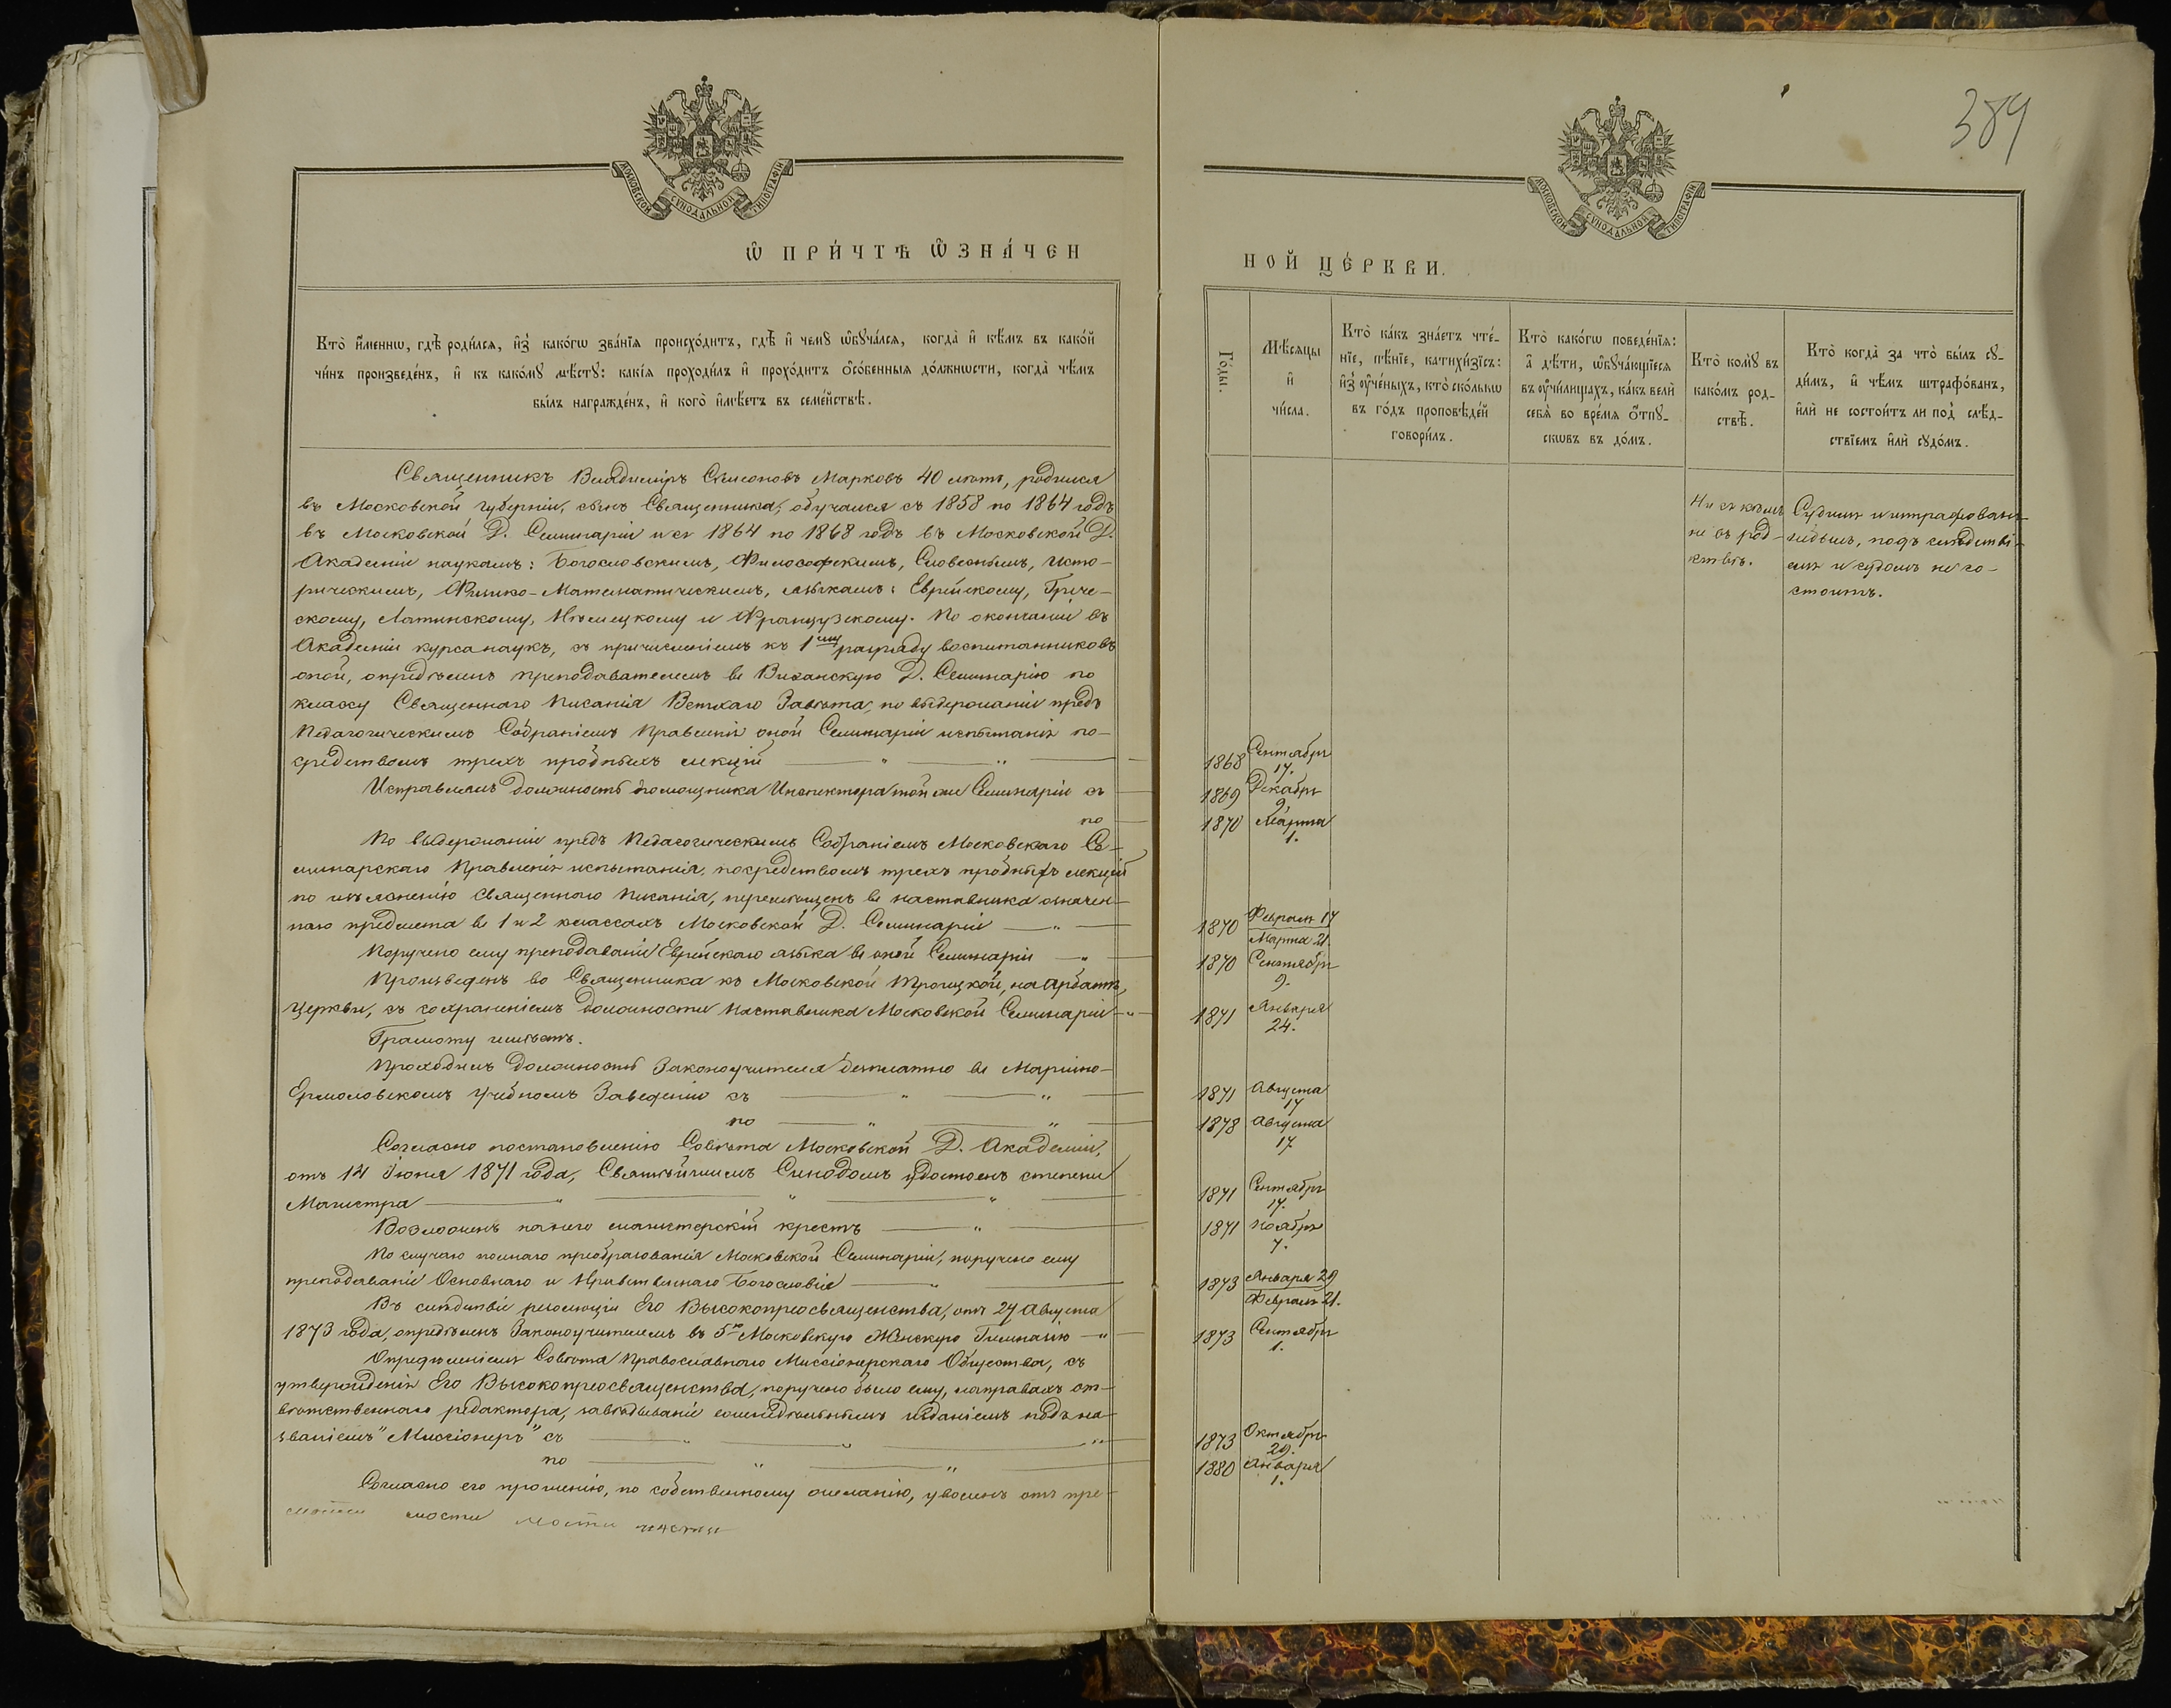 389
МОСКОВСКОЙ СѴНОДАЛЬНОЙ ТИПОГРАФІИ
МОСКОВСКОЙ СѴНОДАЛЬНОЙ ТИПОГРАФІИ
Ѡ҆ ПРИ́ЧТѢ Ѡ҆ЗНА́ЧЕН
НОЙ ЦЕ́РКВИ.
Кто̀ и҆́меннѡ, гдѣ̀ роди́лсѧ, и҆з̾ како́гѡ зва́нїѧ происхо́дитъ, гдѣ̀ и҆ чемꙋ̀ ѡ҆бꙋча́лсѧ, когда̀ и҆ кѣ́мъ въ како́й
чи́нъ произведе́нъ, и҆ къ како́мꙋ мѣ́стꙋ: какі́ѧ проходи́лъ и҆ прохо́дитъ ѻ҆со́бенныѧ до́лжнѡсти, когда̀ чѣ́мъ
бы́лъ награжде́нъ, и҆ кого̀ и҆мѣ́етъ въ семе́йствѣ.
Го́ды.
Мѣ́сѧцы
и҆
чи́сла.
Кто̀ ка́къ зна́етъ чте́-
нїе, пѣ́нїе, катихи́зїсъ:
и҆з̾ ᲂу҆че́ныхъ, кто̀ ско́лькѡ
въ го́дъ проповѣ́дей
говори́лъ.
Кто̀ како́гѡ поведе́нїѧ:
а҆ дѣ́ти, ѡ҆бꙋча́ющїесѧ
въ ᲂу҆чи́лищахъ, ка́къ велѝ
себѧ̀ во вре́мѧ ѻ҆́тпꙋ-
скѡвъ въ до́мъ.
Кто̀ комꙋ̀ въ
како́мъ род-
ствѣ̀.
Кто̀ когда̀ за что̀ бы́лъ сꙋ-
ди́мъ, и҆ чѣ́мъ штрафо́ванъ,
и҆лѝ не состои́тъ ли под̾ слѣ́д-
ствїемъ и҆лѝ сꙋдо́мъ.
Священникъ Владиміръ Сѵмеоновъ Марковъ 40 лѣтъ, родился
въ Московской губерніи, сынъ Священника, обучался съ 1858 по 1864 годъ
въ Московской Д. Семинаріи и съ 1864 по 1868 годъ въ Московской Д.
Академіи наукамъ: Богословскимъ, Философскимъ, Словеснымъ, Исто-
рическимъ, Физико-Математическимъ, языкамъ: Еврейскому, Грече-
скому, Латинскому, Нѣмецкому и Французскому. По окончаніи въ
Академіи курса наукъ, съ причисленіемъ къ 1му разряду воспитанниковъ
оной, опредѣленъ преподавателемъ въ Виѳанскую Д. Семинарію по
классу Священнаго Писанія Ветхаго Завѣта, по выдержаніи предъ
Педагогическимъ Собраніемъ Правленія оной Семинаріи испытанія по-
средствомъ трехъ пробныхъ лекцій
1868 Сентября 17.
Исправлялъ должность помощника Инспектора той же Семинаріи съ
1869 Декабря 9.
по
1870 Марта 1.
По выдержаніи предъ Педагогическимъ Собраніемъ Московскаго Се-
минарскаго Правленія испытанія, посредствомъ трехъ пробныхъ лекцій
по изъясненію Священнаго Писанія, перемѣщенъ въ наставника означен-
наго предмета въ 1 и 2 классахъ Московской Д. Семинаріи
1870 Февраля 17
Марта 21.
Поручено ему преподаваніе Еврейскаго языка въ оной Семинаріи
1870 Сентября 9.
Произведенъ во Священника къ Московской Троицкой, на Арбатѣ,
Церкви, съ сохраненіемъ должности Наставника Московской Семинаріи
1871 Января 24.
Грамоту имѣетъ.
Проходилъ должность Законоучителя безплатно въ Маріино-
Ермоловскомъ Учебномъ Заведеніи съ
1871 Августа 17
по
1878 Августа 17
Согласно постановленію Совѣта Московской Д. Академіи,
отъ 14 Іюня 1871 года, Святѣйшимъ Синодомъ удостоенъ степени
Магистра
1871 Сентября 17.
Возложенъ на него магистерскій крестъ
1871 Ноября 7.
По случаю полнаго преобразованія Московской Семинаріи, поручено ему
преподаваніе Основнаго и Нравственнаго Богословія
1873 Января 29
Февраля 21.
Въ слѣдствіе резолюціи Его Высокопреосвященства, отъ 27 Августа
1873 года, опредѣленъ Законоучителемъ въ 5ю Московскую Женскую Гимназію
1873 Сентября 1.
Опредѣленіемъ Совѣта Православнаго Миссіонерскаго Общества, съ
утвержденія Его Высокопреосвященства, поручено было ему, на правахъ от-
вѣтственнаго редактора, завѣдываніе еженедѣльнымъ изданіемъ подъ на-
званіемъ "Миссіонеръ" съ
1873 Октября 29.
по
1880 Января 1.
Согласно его прошенію, по собственному желанію, уволенъ отъ пре-
Ни съ кѣмъ
не въ род-
ствѣ.
Судимъ и штрафованъ
не былъ, подъ слѣдстві-
емъ и судомъ не со-
стоитъ.